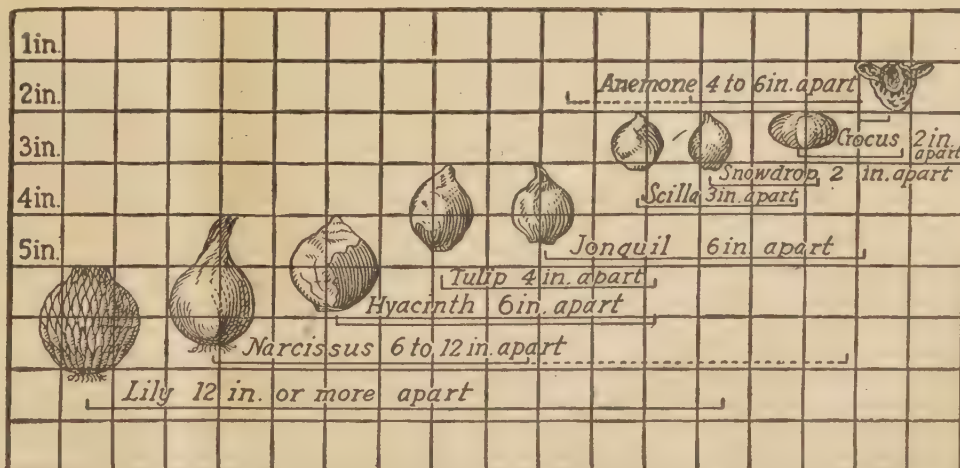 1in.
2in.
3in.
4in.
5in.
Anemone 4 to 6in. apart
Crocus 2in.
apart
Snowdrop 2 in. apart
Scilla 3in. apart
Jonquil 6in apart
Tulip 4 in. apart
Hyacinth 6in. apart
Narcissus 6 to 12 in. apart
Lily 12 in. or more apart